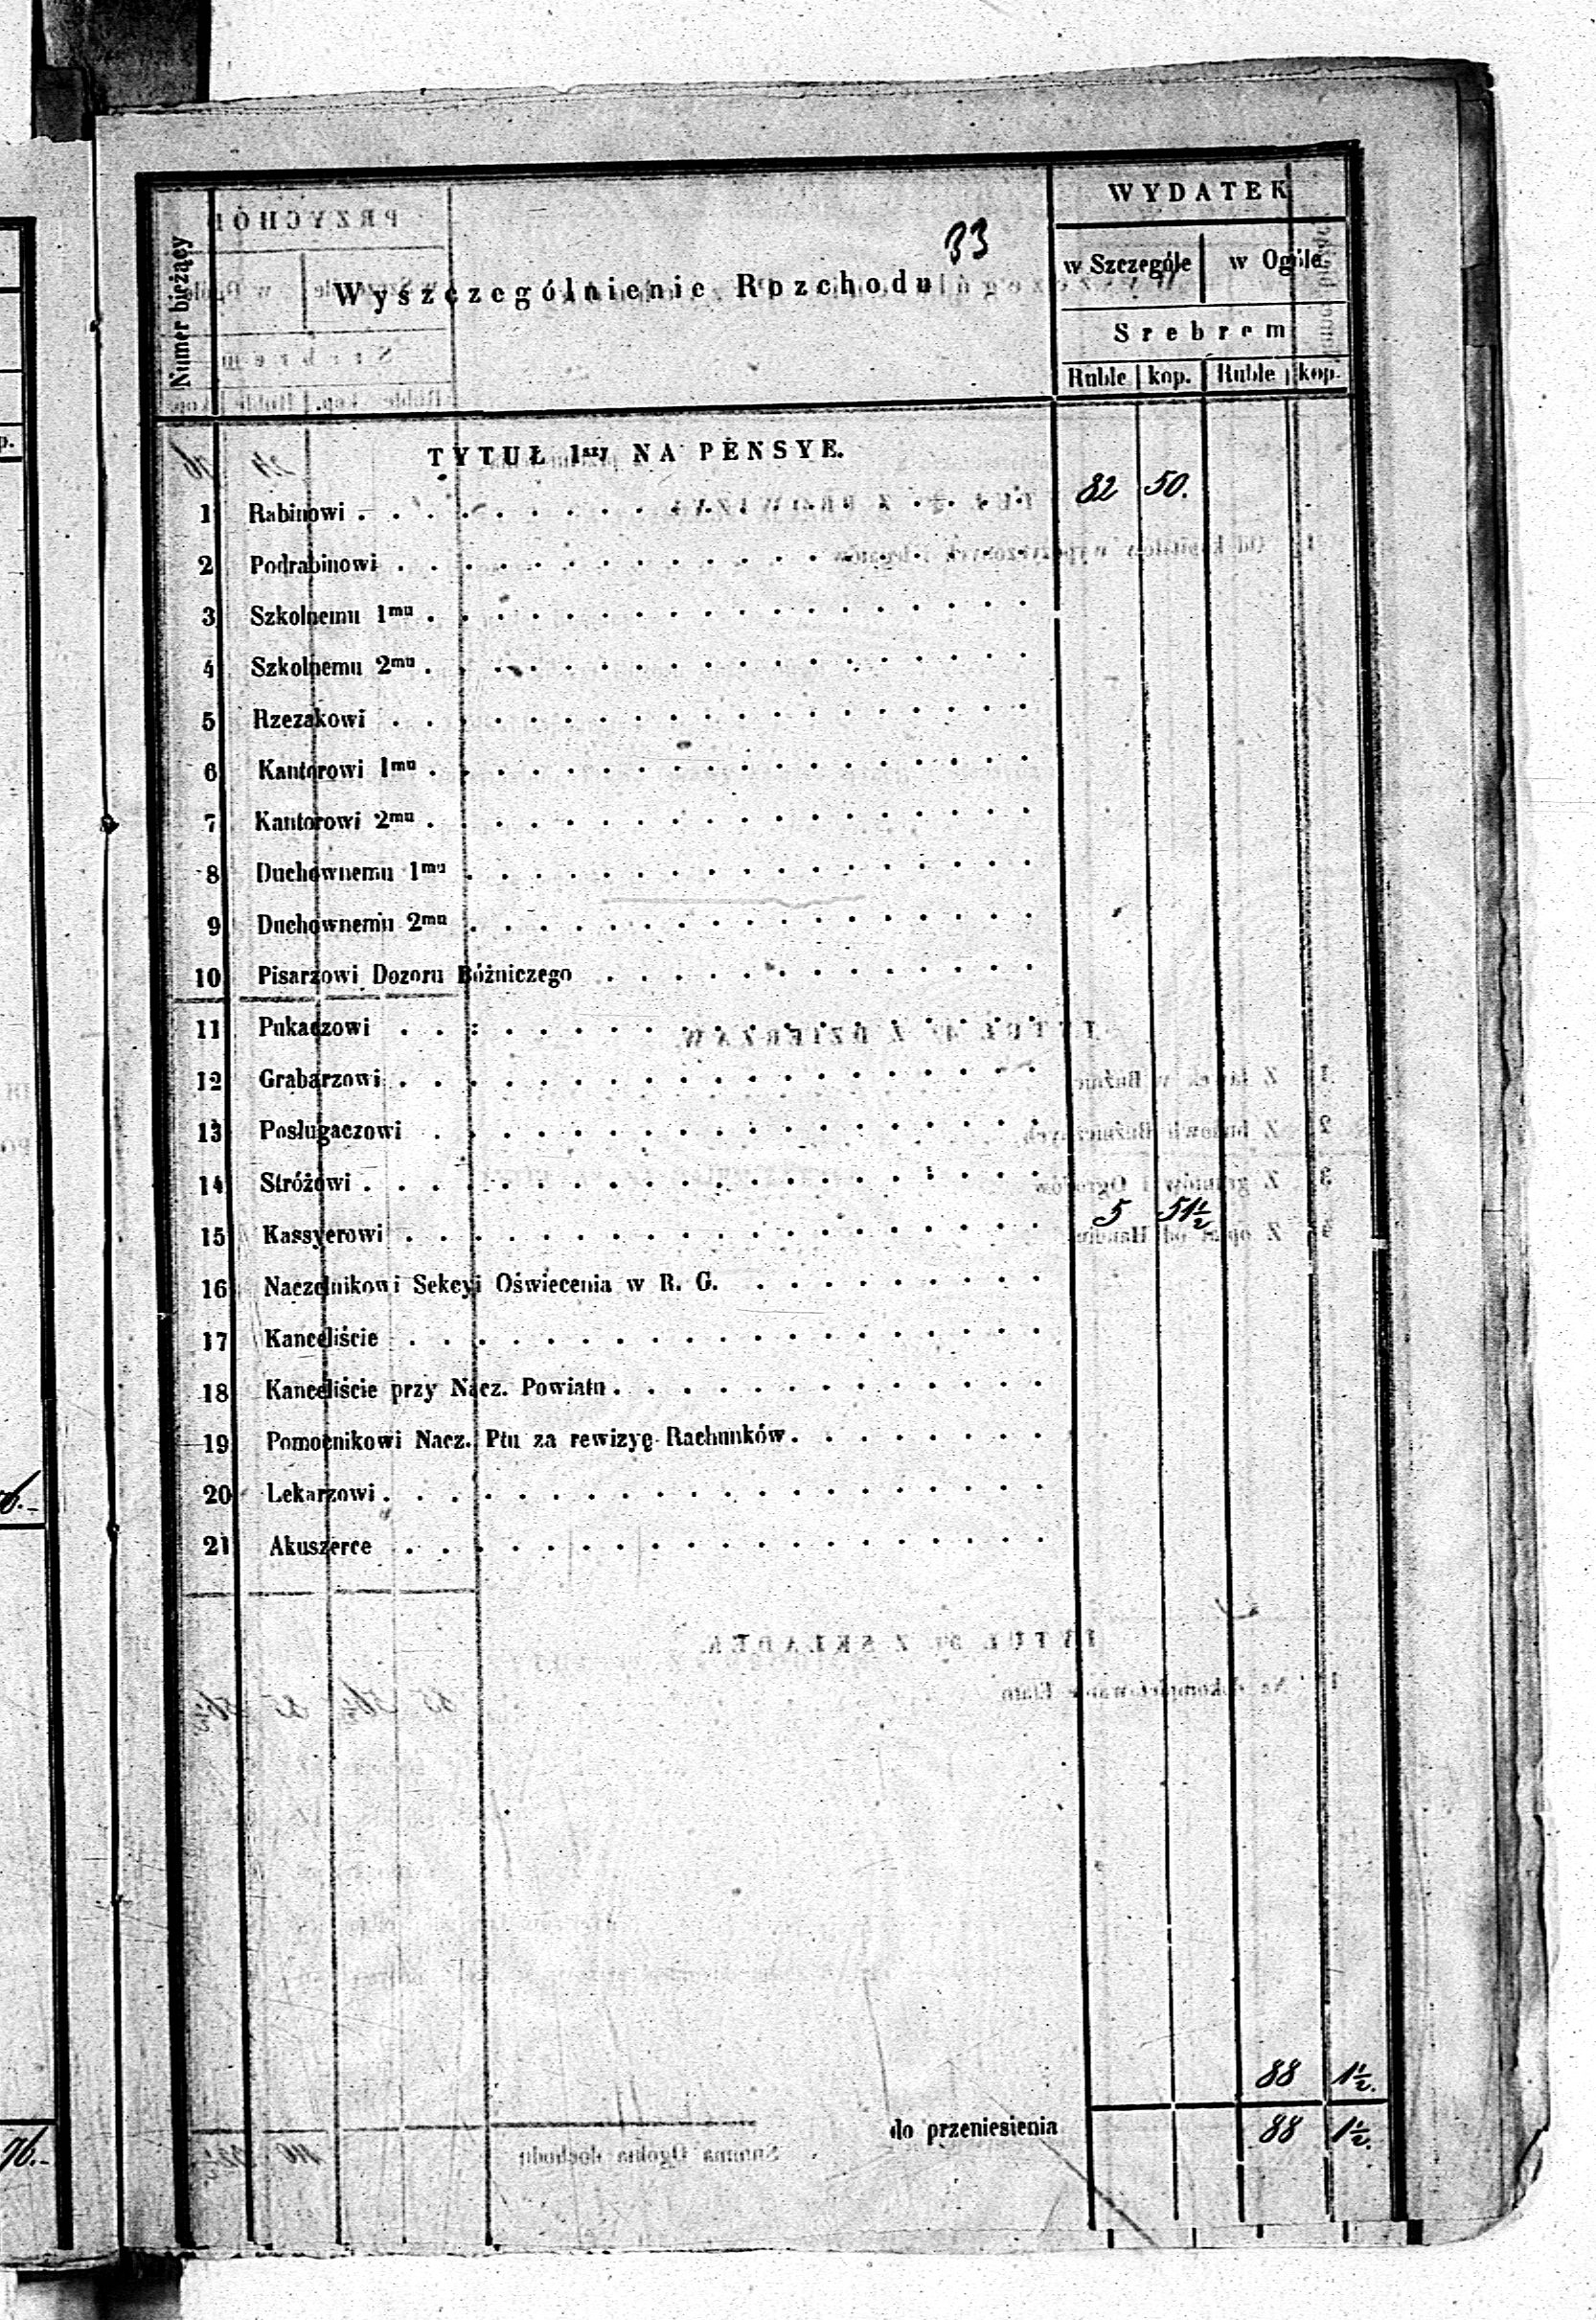 33
WYDATEK
Numer bieżący
Wyszczególnienie Rozchodu
w Szczególe w Ogóle
Srebrem
Ruble kop. Ruble kop.
TYTUŁ 1szy NA PENSYE.
1 Rabinowi . . . . 82 50.
2 Podrabinowi
3 Szkolnemu 1mu
4 Szkolnemu 2mu
5 Rzezakowi
6 Kantorowi 1mu
7 Kantorowi 2mu
8 Duchownemu 1mu
9 Duchownemu 2mu
10 Pisarzowi Dozoru Bóżniczego
11 Pukaczowi
12 Grabarzowi
13 Posługaczowi
14 Stróżowi
15 Kassyerowi . . . . 5 51½
16 Naczelnikowi Sekcyi Oświecenia w R. G.
17 Kanceliście
18 Kanceliście przy Nacz. Powiatu
19 Pomocnikowi Nacz. Ptu za rewizyę Rachunków
20 Lekarzowi
21 Akuszerce
88 1½.
do przeniesienia 88 1½.